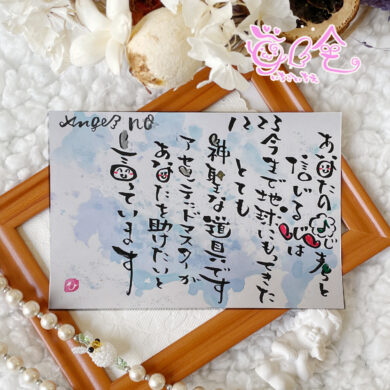 Angel no
1223
あなたの
信じる心は
今まで地球にもってきた
とても
神聖な道具です
アセンデッドマスターが
あなたを助けたいと
言っています